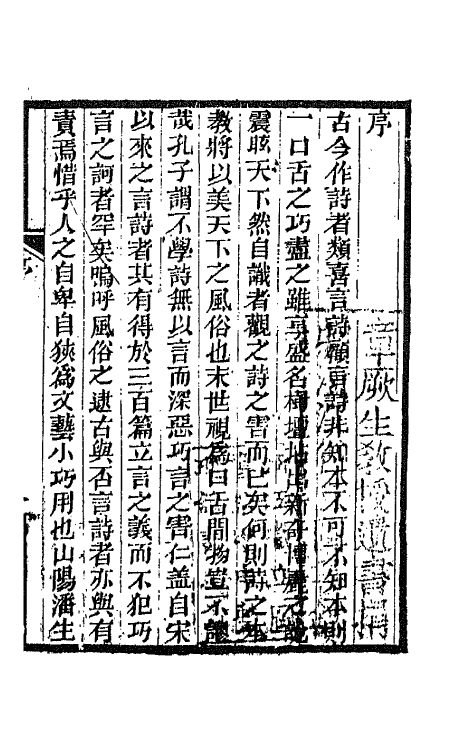 序
古今作詩者類喜言詩顧言詩非知本不可不知本則
一口舌之巧盡之雖享盛名樹壇坫出新奇博麗之說
震眩天下然自識者觀之詩之害而已矣何則詩之本
教將以美天下之風俗也末世視爲口舌間物豈不
哉孔子謂不學詩無以言而深惡巧言之害仁蓋自宋
以來之言詩者其有得於三百篇立言之義而不犯巧
言之訶者罕矣嗚呼風俗之逮古與否言詩者亦與有
責焉惜乎人之自卑自狹爲文藝小巧用也山陽潘生
章厥生教授遺書
序